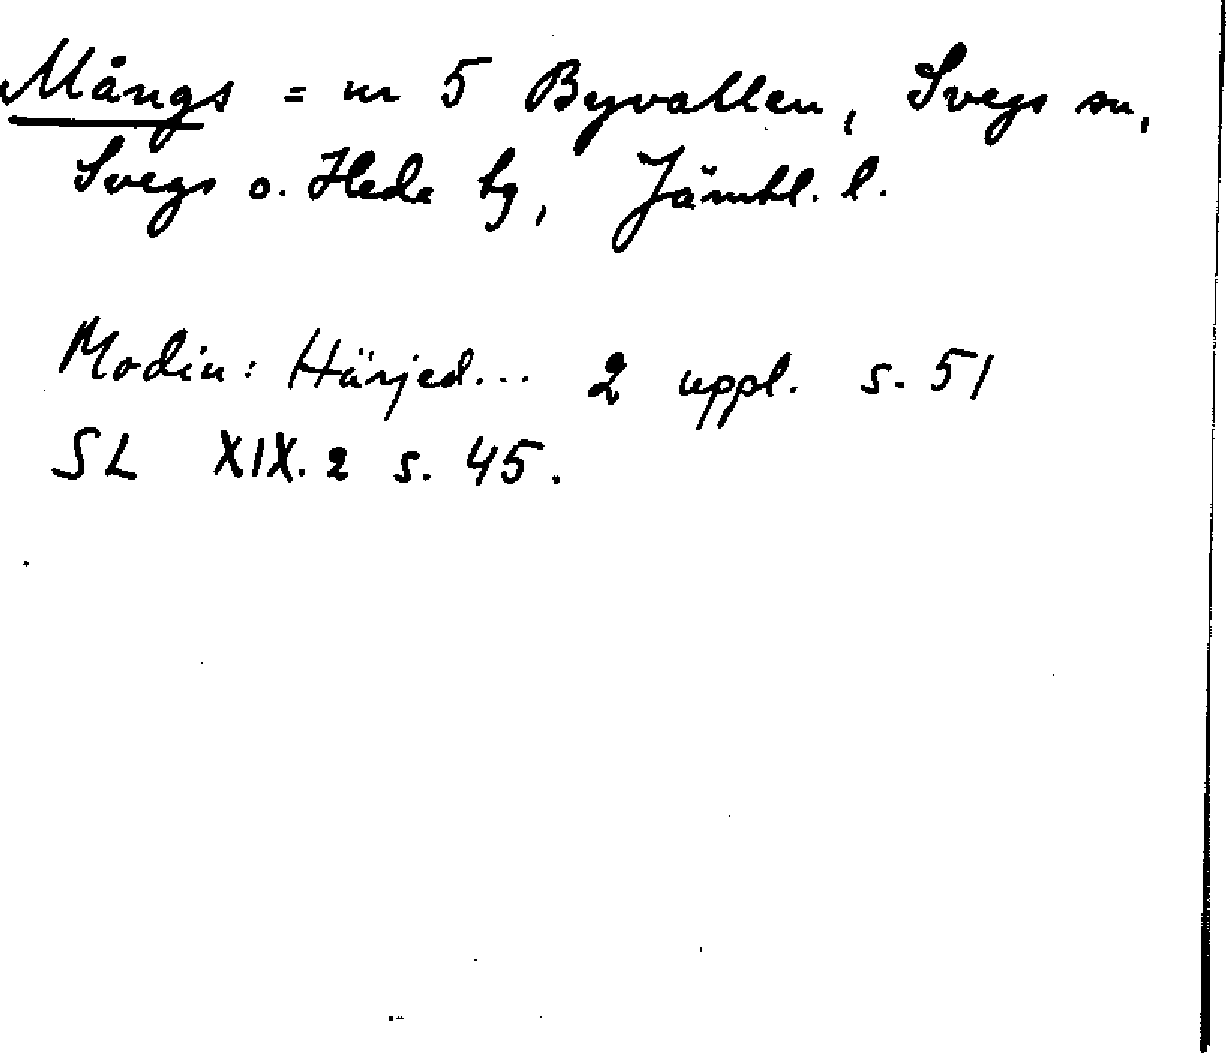 Mångs = nr 5 Byvallen, Svegs sn,
Svegs o. Hede tg, Jämtl. l.
Modin: Härjed... 2 uppl. s. 51
SL XIX. 2 s. 45.